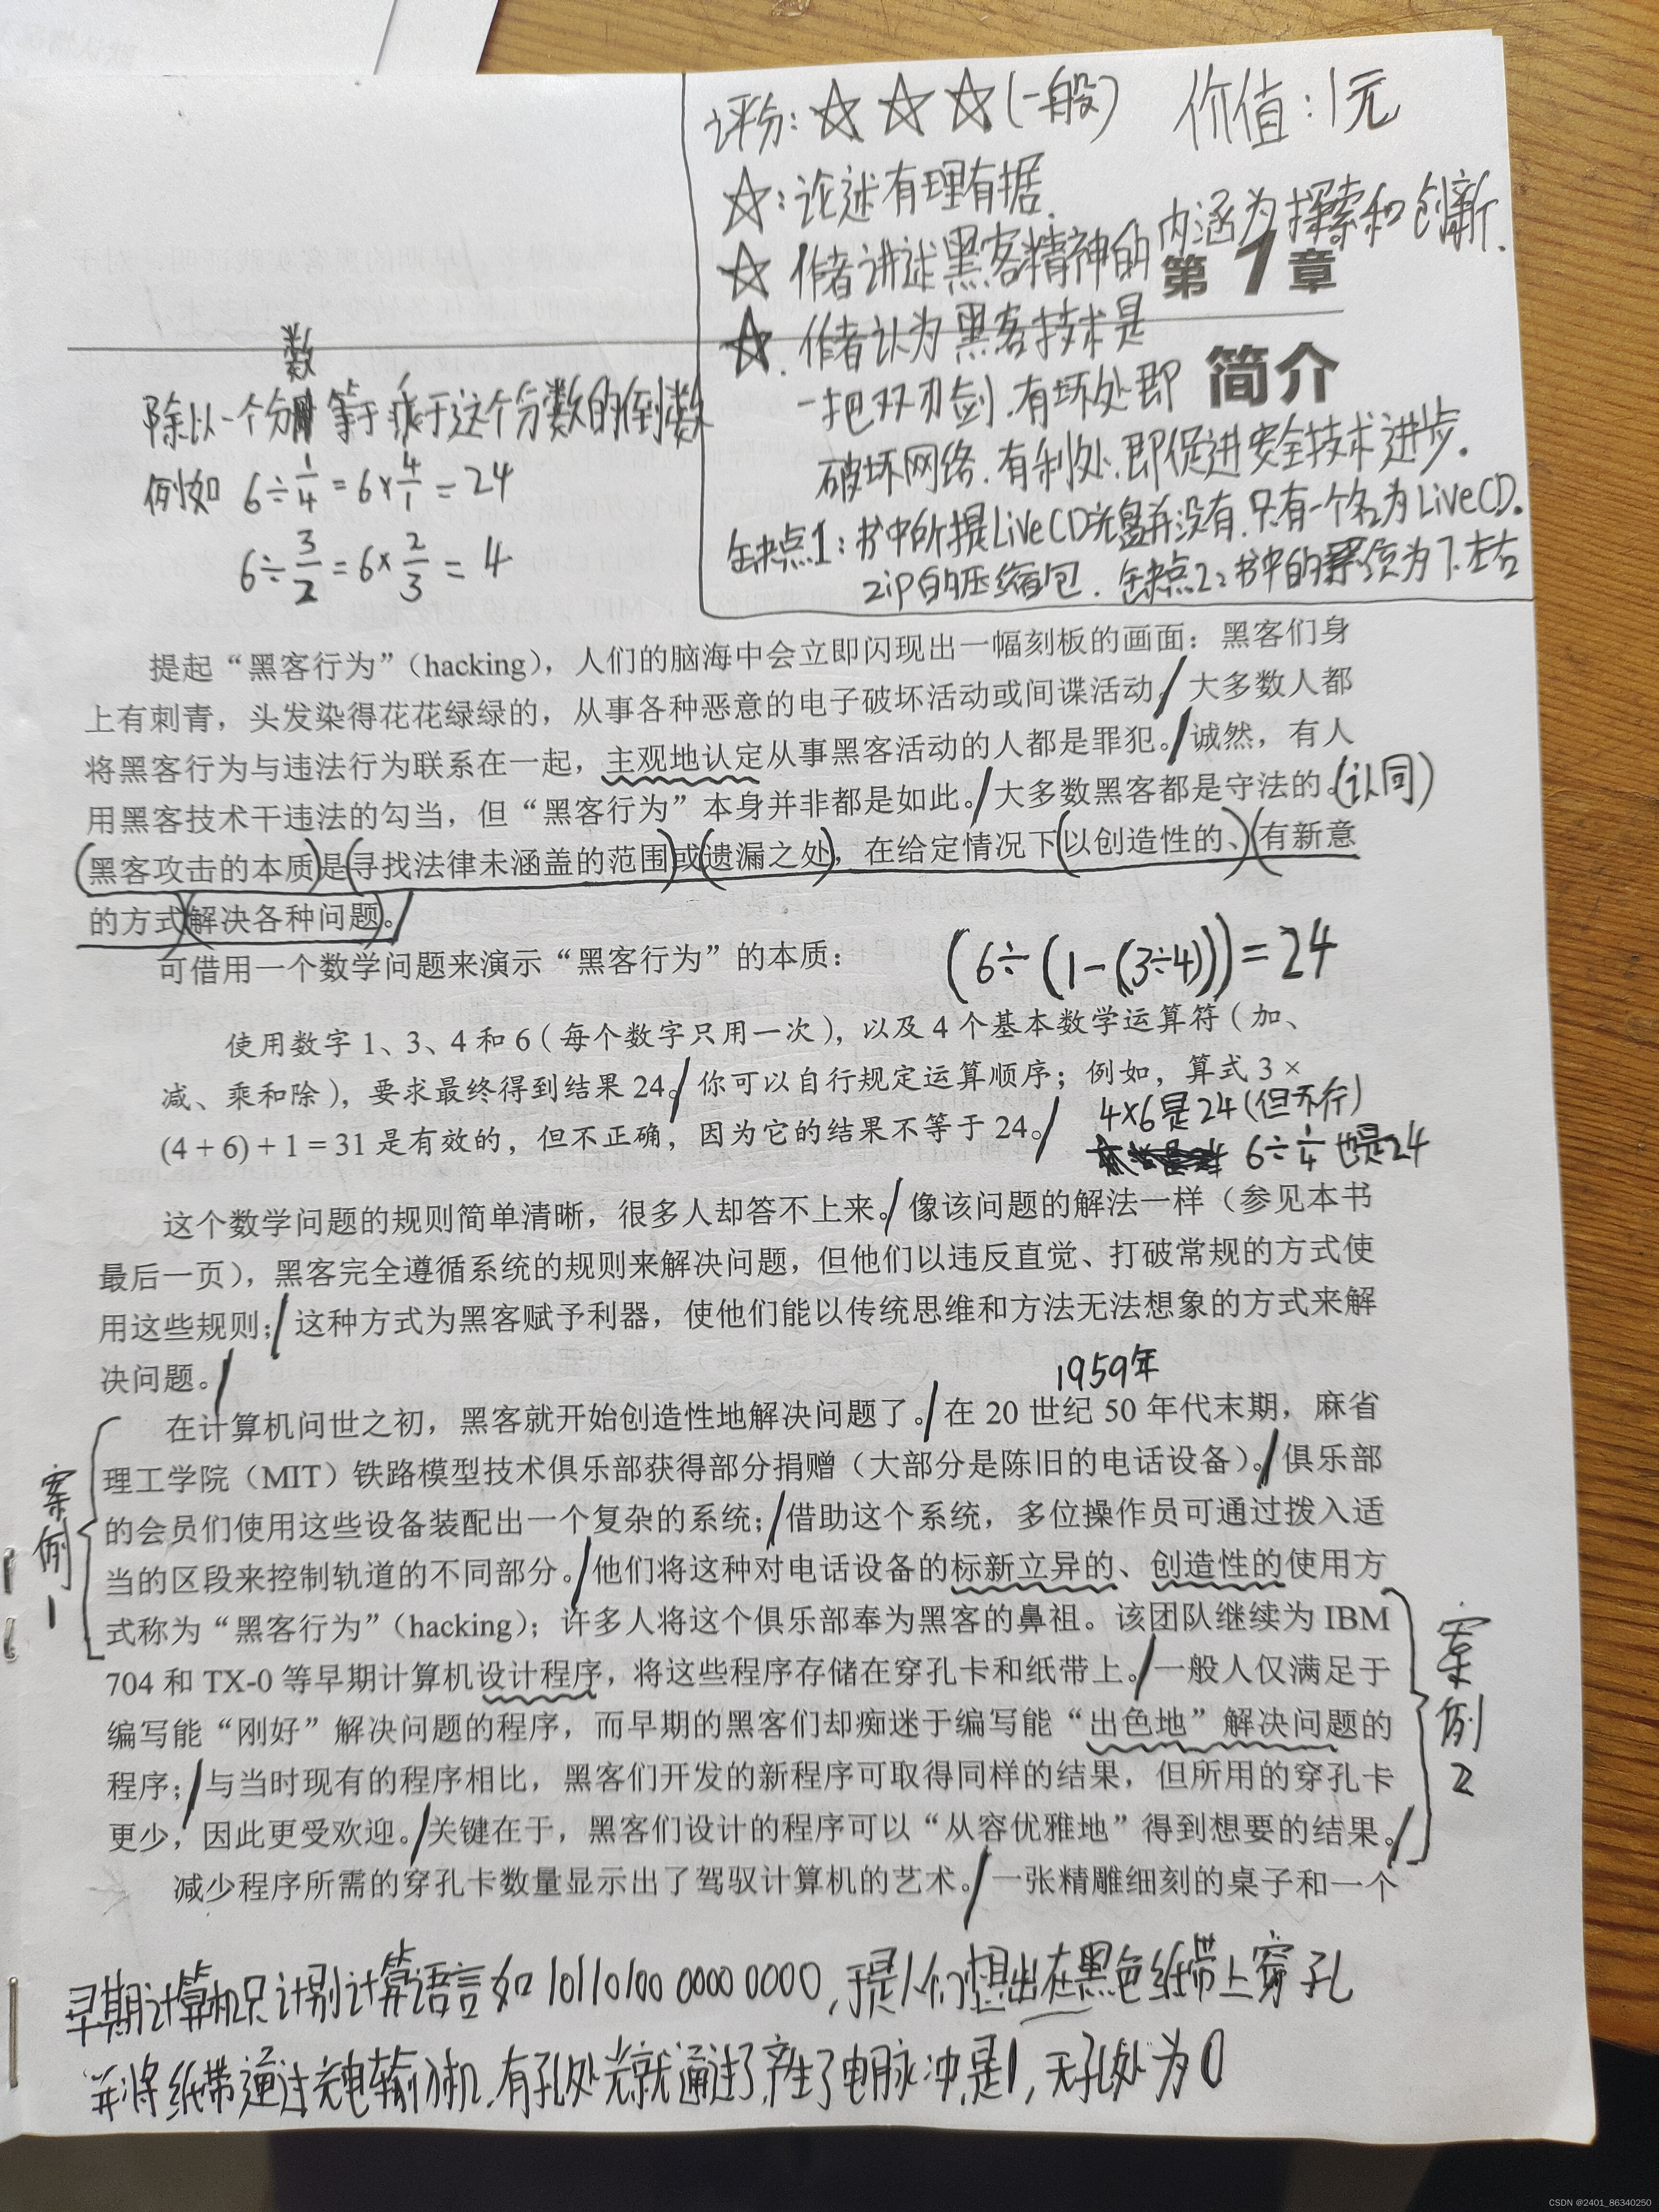 评分：☆☆☆(一般) 价值：1元
☆：论述有理有据.
☆ 作者讲述黑客精神的内涵为探索和创新.
第1章
☆. 作者认为黑客技术是
一把双刃剑.有坏处即
简介
破坏网络.有利处.即促进安全技术进步。
缺点1：书中所提LiveCD光盘并没有.只有一个名为LiveCD.
zip的压缩包. 缺点2：书中的 为下.左右
数
除以一个分 等于乘于这个分数的倒数
例如 6÷1/4=6×4/1=24
6÷3/2=6×2/3=4
提起“黑客行为”（hacking），人们的脑海中会立即闪现出一幅刻板的画面：黑客们身
上有刺青，头发染得花花绿绿的，从事各种恶意的电子破坏活动或间谍活动。大多数人都
将黑客行为与违法行为联系在一起，主观地认定从事黑客活动的人都是罪犯。诚然，有人
用黑客技术干违法的勾当，但“黑客行为”本身并非都是如此。大多数黑客都是守法的。(认同)
黑客攻击的本质是寻找法律未涵盖的范围或遗漏之处，在给定情况下以创造性的、有新意
的方式解决各种问题。
可借用一个数学问题来演示“黑客行为”的本质：
(6÷(1-(3÷4)))=24
使用数字 1、3、4 和 6（每个数字只用一次），以及 4 个基本数学运算符（加、
减、乘和除），要求最终得到结果 24。你可以自行规定运算顺序；例如，算式 3 ×
(4 + 6) + 1 = 31 是有效的，但不正确，因为它的结果不等于 24。
4×6是24(但不行)
6÷1/4也是24
这个数学问题的规则简单清晰，很多人却答不上来。像该问题的解法一样（参见本书
最后一页），黑客完全遵循系统的规则来解决问题，但他们以违反直觉、打破常规的方式使
用这些规则；这种方式为黑客赋予利器，使他们能以传统思维和方法无法想象的方式来解
决问题。
1959年
在计算机问世之初，黑客就开始创造性地解决问题了。在 20 世纪 50 年代末期，麻省
理工学院（MIT）铁路模型技术俱乐部获得部分捐赠（大部分是陈旧的电话设备）。俱乐部
的会员们使用这些设备装配出一个复杂的系统；借助这个系统，多位操作员可通过拨入适
当的区段来控制轨道的不同部分。他们将这种对电话设备的标新立异的、创造性的使用方
式称为“黑客行为”（hacking）；许多人将这个俱乐部奉为黑客的鼻祖。该团队继续为 IBM
704 和 TX-0 等早期计算机设计程序，将这些程序存储在穿孔卡和纸带上。一般人仅满足于
编写能“刚好”解决问题的程序，而早期的黑客们却痴迷于编写能“出色地”解决问题的
程序；与当时现有的程序相比，黑客们开发的新程序可取得同样的结果，但所用的穿孔卡
更少，因此更受欢迎。关键在于，黑客们设计的程序可以“从容优雅地”得到想要的结果。
案例1
案例2
减少程序所需的穿孔卡数量显示出了驾驭计算机的艺术。一张精雕细刻的桌子和一个
早期计算机只计别计算语言如 10110100 0000 0000，于是人们想出在黑色纸带上穿孔
并将纸带通过光电输入机.有孔处光就通过了.产生了电脉冲,是1，无孔处为0
CSDN @2401_86340250